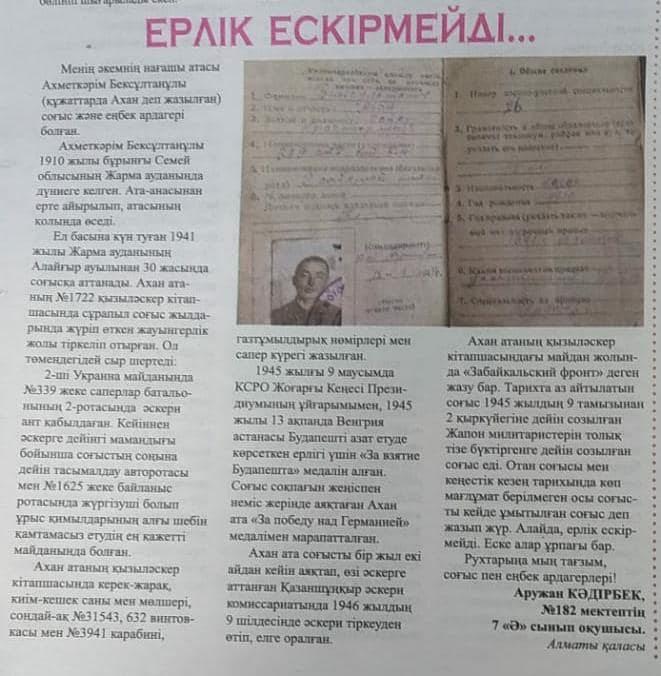 ЕРЛІК ЕСКІРМЕЙДІ...
Менің әкемнің нағашы атасы
Ахметкәрім Бексұлтанұлы
(құжаттарда Ахан деп жазылған)
соғыс және еңбек ардагері
болған.
Ахметкәрім Бексұлтанұлы
1910 жылы бұрынғы Семей
облысының Жарма ауданында
дүниеге келген. Ата-анасынан
ерте айырылып, атасының
қолында өседі.
Ел басына күн туған 1941
жылы Жарма ауданының
Алайғыр ауылынан 30 жасында
соғысқа аттанады. Ахан ата-
ның №1722 қызыләскер кітап-
шасында сұрапыл соғыс жылда-
рында жүріп өткен жауынгерлік
жолы тіркеліп отырған. Ол
төмендегідей сыр шертеді:
2-ші Украина майданында
№339 жеке саперлар батальо-
нының 2-ротасында әскери
ант қабылдаған. Кейіннен
әскерге дейінгі мамандығы
бойынша соғыстың соңына
дейін тасымалдау авторотасы
мен №1625 жеке байланыс
ротасында жүргізуші болып
ұрыс қимылдарының алғы шебін
қамтамасыз етудің ең қажетті
майданында болған.
Ахан атаның қызыләскер
кітапшасында керек-жарақ,
киім-кешек саны мен мөлшері,
сондай-ақ №31543, 632 винтов-
касы мен №3941 карабині,
1. Общие сведения
26
3. Национальность
4. Год рождения
газтұмылдырық нөмірлері мен
сапер күрегі жазылған.
1945 жылғы 9 маусымда
КСРО Жоғарғы Кеңесі Прези-
диумының ұйғарымымен, 1945
жылы 13 ақпанда Венгрия
астанасы Будапешті азат етуде
көрсеткен ерлігі үшін «За взятие
Будапешта» медалін алған.
Соғыс соқпағын жеңіспен
неміс жерінде аяқтаған Ахан
ата «За победу над Германией»
медалімен марапатталған.
Ахан ата соғысты бір жыл екі
айдан кейін аяқтап, өзі әскерге
аттанған Қазаншұңқыр әскери
комиссариатында 1946 жылдың
9 шілдесінде әскери тіркеуден
өтіп, елге оралған.
Ахан атаның қызыләскер
кітапшасындағы майдан жолын-
да «Забайкальский фронт» деген
жазу бар. Тарихта аз айтылатын
соғыс 1945 жылдың 9 тамызынан
2 қыркүйегіне дейін созылған
Жапон милитаристерін толық
тізе бүктіргенге дейін созылған
соғыс еді. Отан соғысы мен
кеңестік кезең тарихында көп
мағлұмат берілмеген осы соғыс-
ты кейде ұмытылған соғыс деп
жазып жүр. Алайда, ерлік ескір-
мейді. Еске алар ұрпағы бар.
Рухтарыңа мың тағзым,
соғыс пен еңбек ардагерлері!
Аружан КӘДІРБЕК,
№182 мектептің
7 «Ә» сынып оқушысы.
Алматы қаласы